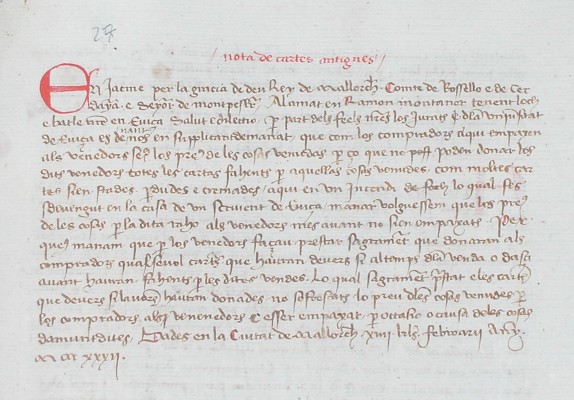 27
nota de cartes antigues
En Jacme per la gracia de deu Rey de Mallorch Comte de Rossello e de Cer
danya e Senyor de montpesller Al amat en Ramon montaner tenent loch
e batle nre en Eviça Salut e dilectio per part dels feels nres los Jurats e dla universitat
de Eviça es nant de nos en supplicant demanat que com los compradors aqui empaxen
als venedors los preu de les coses venudes per ço que no poden donar los
dits venedors totes les cartes fahents per aquelles coses venudes com moltes car
tes sien stades perdudes e cremades aqui en un incendi de foch lo qual ses
devengut en la casa de un scrivent de Eviça manar volguessem que los preu
de les coses per la dita raho als venedors mes avant no sien empaxats Per
que us manam que per los venedors façau prestar sagrament que donaran als
compradors qualsevol cartes que hauran devers si al temps dla venda o dasi
avant hauran fahents per les dites vendes Lo qual sagrament prestat e les cartes
que devers si lavors hauran donades no sofirats lo preu dles coses venudes per
los compradors als venenedors esser empaxat per occasio o causa deles coses
damunt dites Dades en la Ciutat de Mallorch xiiii kls februarii Any
M CCC XXXII